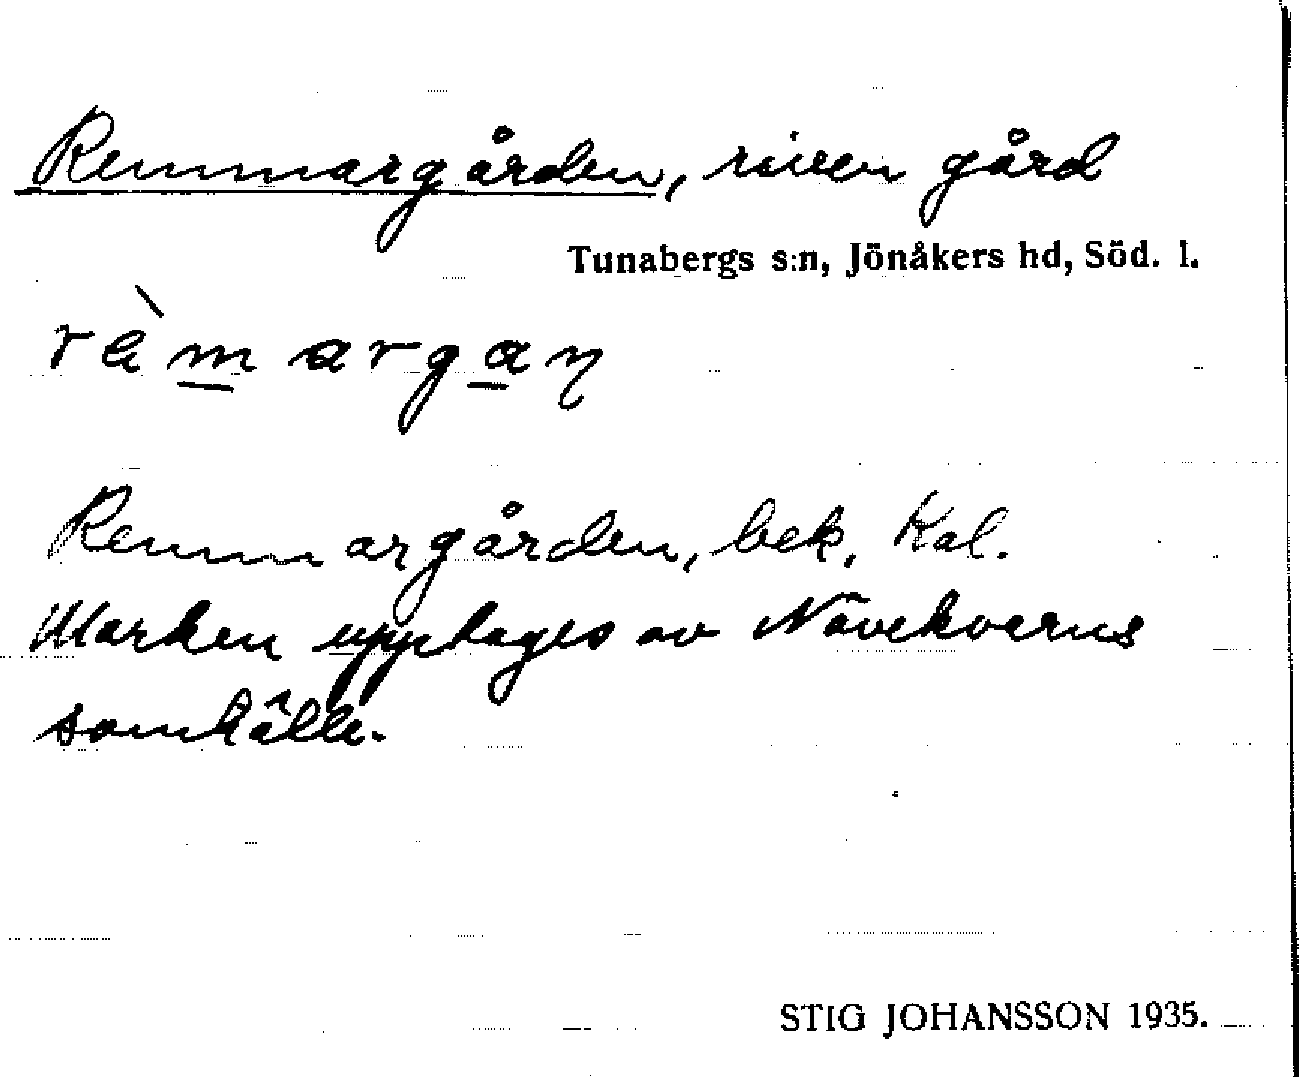 Remmargården, riven gård
Tunabergs s:n, Jönåkers hd, Söd. l.
rèmargan
Remmargården, bek. Kal.
Marken upptages av Nävekvarns
samhälle.
STIG JOHANSSON 1935.